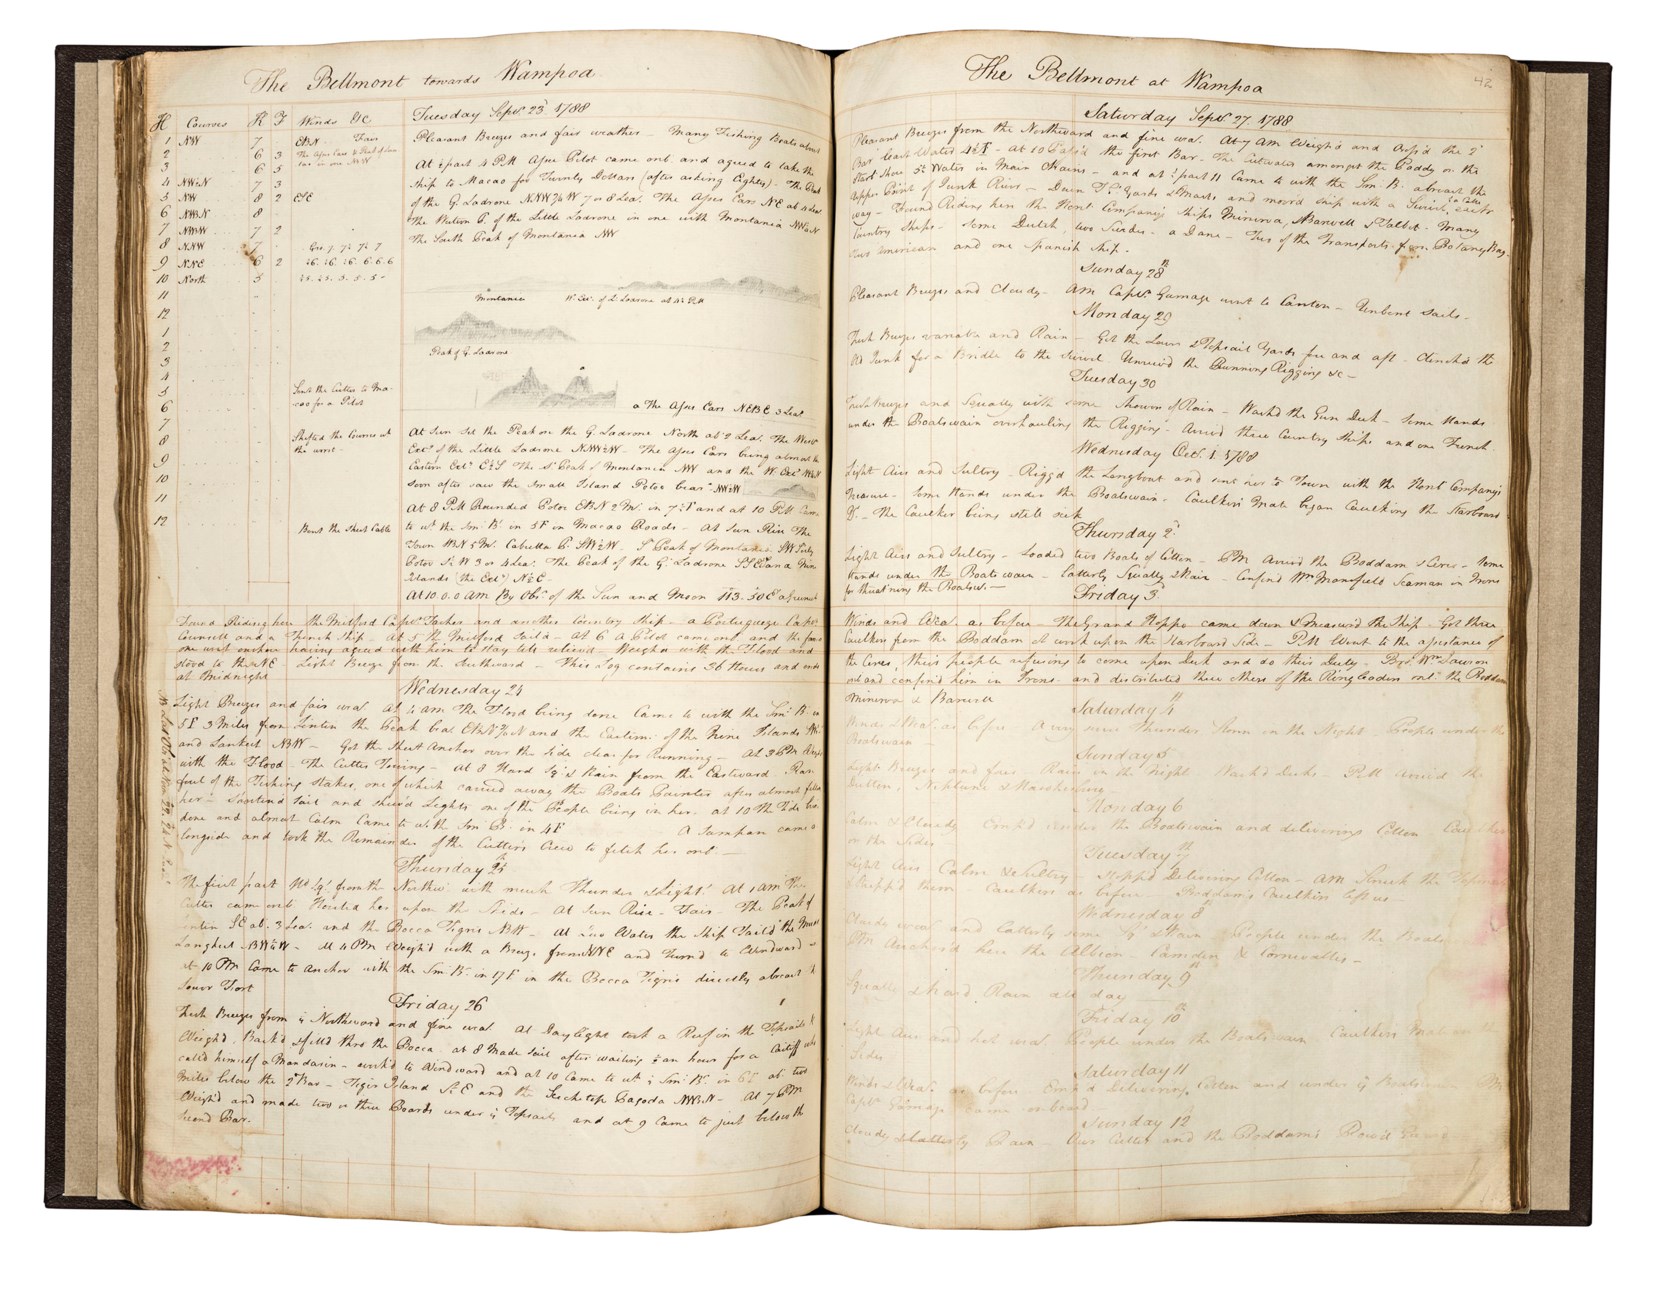 The Bellmont towards Wampoa
H Courses K F Winds &c
Tuesday Sept. 23d 1788
1 NW 7 EBN Fair
2 6 3 The Asses Ears & Peak of
3 6 5 in one NWN
4 NW½N 7 3
5 NW 8 2 E½E
6 NWBN 8
7 NWBW 7 2
8 NNW 7
9 NNE 6 2
10 North 5
11
12
1
2
3
4
5 Sent the Cutter to Ma-
6 cao for a Pilot
7
8 Shifted the Courses at
9 the unst
10
11
12 Bent the Sheet Cable
Pleasant Breezes and fair weather - Many Fishing Boats about
At ½ past 4 PM a Pilot came out and agreed to take the
Ship to Macao for Twenty Dollars (after asking Eighty) - The Peak
of the G. Ladrone NNW¾W 7 or 8 Lea. The Asses Ears NE at 4 Lea
The Western P. of the Little Ladrone in one with Montania NWBN
The South Peak of Montania NW
Montania W. Ext. of L. Ladrone at 4½ PM
Peak of G. Ladrone
a The Asses Ears NEBE 3 Lea.
At Sun Set the Peak on the G. Ladrone North at 2 Lea. The West
Ext. of the Little Ladrone NNW½W - The Asses Ears being almost the
Eastern Ext. E½S The S. Peak of Montania NW and the W. Ext. W½N
Soon after saw the Small Island Potoe bear. NW½W
At 8 PM Rounded Potoe EBN 2 M. in 7½ F and at 10 PM Came
to wt. the Sm. Br. in 5 F in Macao Roads - At Sun Rise The
Town WBN 5 M. Cabretta P. SW½W - S. Peak of Montania SW
Potoe S½W 3 or 4 Lea. The Peak of the G. Ladrone SSE and a Nine
Islands (the Ext.) N½E
At 10.0.0 AM By Obs. of the Sun and Moon 113.30 E of Greenwich
Found Riding here the Milford Capt. Jackson and another Country Ship - a Portuguese Capt.
Cornwell and a French Ship - At 5 the Milford Sail'd - At 6 A Pilot came out and the former
one went onshore having agreed with him to stay till relieved - Weigh'd with the Flood and
stood to the NE - Light Breeze from the Southward - This Log contains 36 Hours and ends
at Midnight
Wednesday 24
Light Breezes and fair wea. At 4 AM The Flood being done Came to with the Sm. Br. in
5 F 3 Miles from Lintin the Peak bear. EBN¾N and the Eastern. of the Nine Islands
and Lankeet NBW - Got the Sheet Anchor over the side clear for Running - At 3 PM Weigh'd
with the Flood. The Cutter Towing - At 8 Hard Sq. & Rain from the Eastward - Ran
foul of the Fishing Stakes, one of which carried away the Boats Painter after almost filling
her - Shortend Sail and shew'd Lights, one of the People being in her. at 10 The Tide being
done and almost Calm Came to wt. the Sm. Br. in 4 F A Sampan came a
longside and took the Remainder of the Cutters Crew to fetch her out -
Thursday 25th
The first part Hd. Sq. from the Northw. with much Thunder & Light. At 1 AM The
Cutter came out Hauled her upon the Skids - At Sun Rise - Fair - The Peak of
Lintin SE at 3 Lea. and the Bocca Tigris NBW - At Low Water the Ship Tail'd the Mud
Langket NBW½W - At 4 PM Weigh'd with a Breeze from NNE and Turn'd to Windward -
at 10 PM Came to Anchor with the Sm. Br. in 17 F in the Bocca Tigris directly abreast the
Lower Fort
Friday 26
Fresh Breezes from ye Northward and fine wea. At Daylight took a Reef in the Topsails &
Weigh'd. Back'd & fill'd thro the Bocca. at 8 Made Sail after waiting ½ an hour for a Caitiff who
call'd himself a Mandarin - work'd to Windward and at 10 Came to wt. ye Sm. Br. in 6 F at two
Miles below the 2d Bar - Tiger Island S½E and the Second top Pagoda NWBN - At 7 PM
Weigh'd and made two or three Boards under ye Topsails and at 9 Came to just below the
Second Bar.
The Bellmont at Wampoa
42
Saturday Sept. 27. 1788
Pleasant Breezes from the Northward and fine wea. At 7 AM Weigh'd and Cross'd the 2d
Bar least Water 4¾ F - at 10 Pass'd the first Bar - The Cutwater amongst the Paddy on the
Start Shore 3½ Water in Main Chains - and at ½ past 11 Came to with the Sm. B. abreast the
Upper Point of Junk River - Down T.G. Yards & Masts and moor'd ship with a Swivel
way - Found Riding here the Hon. Company's Ships Minerva, Barwell & Talbot - Many
Country Ships - Some Dutch, two Swedes - a Dane - Two of the Transports from Botany Bay -
two American and one Spanish Ship.
Sunday 28th
Pleasant Breezes and Cloudy - AM Capt. Gamage went to Canton - Unbent Sails -
Monday 29
Fresh Breezes variable and Rain - Got the Lower & Topsail Yards fore and aft - clench'd the
Old Junk for a Bridle to the Swivel Unreev'd the Running Rigging &c -
Tuesday 30
Fresh Breezes and Squally with some Showers of Rain - Wash'd the Gun Deck - Some Hands
under the Boatswain overhauling the Rigging. Arriv'd three Country Ships and one French
Wednesday Oct. 1. 1788
Light Airs and Sultry - Rigg'd the Longboat and sent her to Town with the Hon. Company's
Treasure - Some Hands under the Boatswain - Caulkers Mate began Caulking the Starboard
Sd. - The Caulker being still sick
Thursday 2d
Light Airs and Sultry - Loaded two Boats of Cotton - PM Arriv'd the Boddam & Ceres - Some
Hands under the Boatswain - Latterly Squally & Rain - Confin'd Wm. Mansfield Seaman in Irons
for threatning the Boatsw. -
Friday 3d
Winds and Wea. as before - The Grand Hoppo came down & Measured the Ship - Got three
Caulkers from the Boddam at work upon the Starboard Side - PM Went to the assistance of
the Ceres, their people refusing to come upon Deck and do their Duty - Wm. Lawson
out and confin'd him in Irons - and distributed three others of the Ring leaders on the Boddam
Minerva & Barwell
Saturday 4th
Winds & Wea. as before A very severe Thunder Storm in the Night, People under the
Boatswain
Sunday 5
Light Breezes and fair - Rain in the Night. Wash'd Decks - PM Arriv'd the
Dutton, Neptune & Washington
Monday 6
Calm & Cloudy Emp'd under the Boatswain and delivering Cotton Caulkers
on the Sides
Tuesday 7th
Light Airs Calm & Sultry - Stopp'd Delivering Cotton - AM Struck the Topmasts
& Stripp'd them - Caulkers as before - Boddam's Caulkers left us -
Wednesday 8th
Cloudy wea. and latterly some Sq. & Rain - People under the Boats
PM Anchor'd here the Albion - Camden & Cornwallis -
Thursday 9th
Squally & hard Rain all day
Friday 10th
Light Airs and hot wea. People under the Boatswain Caulkers
Sides
Saturday 11
Winds & Wea. as before Emp'd Delivering Cotton and under ye Boats
Capt. Gamage came onboard
Sunday 12
Cloudy & latterly Rain - Our Cutter and the Boddam's Row'd